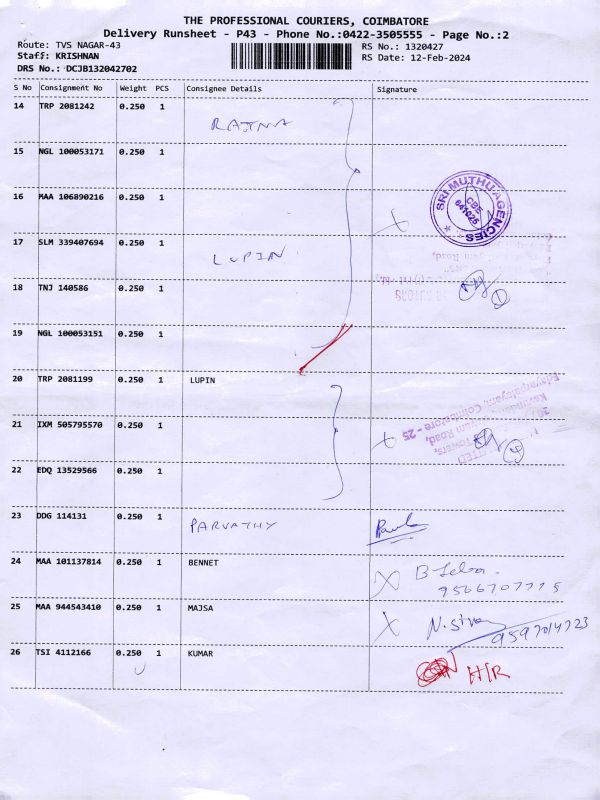 THE PROFESSIONAL COURIERS, COIMBATORE
Delivery Runsheet - P43 - Phone No.:0422-3505555 - Page No.:2
Route: TVS NAGAR-43 RS No.: 1320427
Staff: KRISHNAN RS Date: 12-Feb-2024
DRS No.: DCJB132042702
S No Consignment No Weight PCS Consignee Details Signature
14 TRP 2081242 0.250 1
15 NGL 100053171 0.250 1
16 MAA 106890216 0.250 1
SRI MUTHU AGENCIES
CBE
641025
17 SLM 339407694 0.250 1 LUPIN
18 TNJ 140586 0.250 1
19 NGL 100053151 0.250 1
20 TRP 2081199 0.250 1 LUPIN
21 IXM 505795570 0.250 1
Edayarpalayam, Coimbatore - 25
22 EDQ 13529566 0.250 1
23 DDG 114131 0.250 1 PARVATHY
24 MAA 101137814 0.250 1 BENNET
25 MAA 944543410 0.250 1 MAJSA
26 TSI 4112166 0.250 1 KUMAR H/R